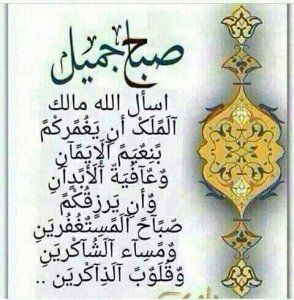 صباح جميل
اسأل الله مالك
آلمَلَكْ أن يَغْمُركْمً
بًنعٍيَمً آلإيَمًآنِ
وٌعٓآفُيَةّ آلأبًدآنِ
وٌأنِ يَرزٍقُكْمً
صّبًآحً آلمًسِتٌغُفُريَنِ
وٌمًسِآء آلشُآكْريَنِ
وٌقُلوٌبً آلذِآكْريَن ..